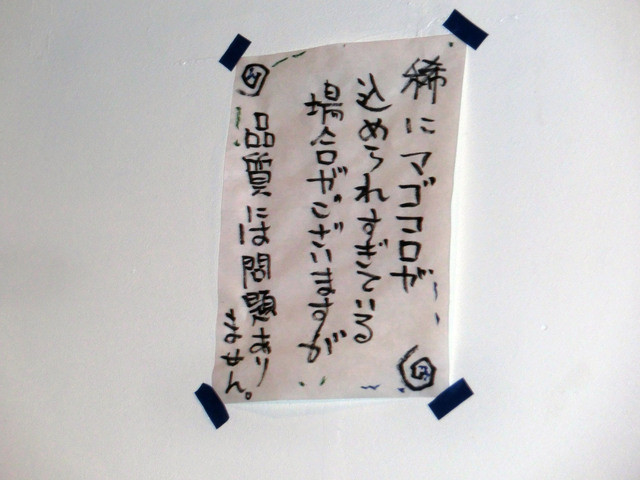 稀にマゴコロが
込められすぎている
場合がございますが
品質には問題あり
ません。